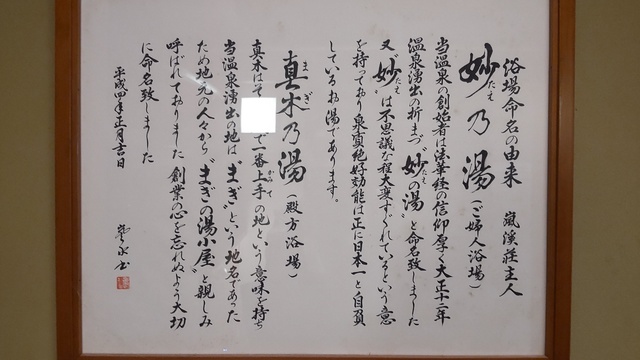 浴場命名の由来 嵐渓荘主人
妙乃湯（ご婦人浴場）
たえ
当温泉の創始者は法華経の信仰厚く大正十二年
温泉湧出の折まづ“妙の湯”と命名致しました
たえ
又“妙”は不思議な程大変すぐれているという意
たえ
を持っており泉質絶好効能は正に日本一と自負
しているお湯であります。
真木乃湯（殿方浴場）
まぎ
真木はそ で一番上手の地という意味を持ち
かみて
当温泉湧出の地は“まぎ”という地名であった
ため地元の人々から“まぎの湯小屋”と親しみ
呼ばれておりました 創業の心を忘れぬよう大切
に命名致しました
平成四年正月吉日